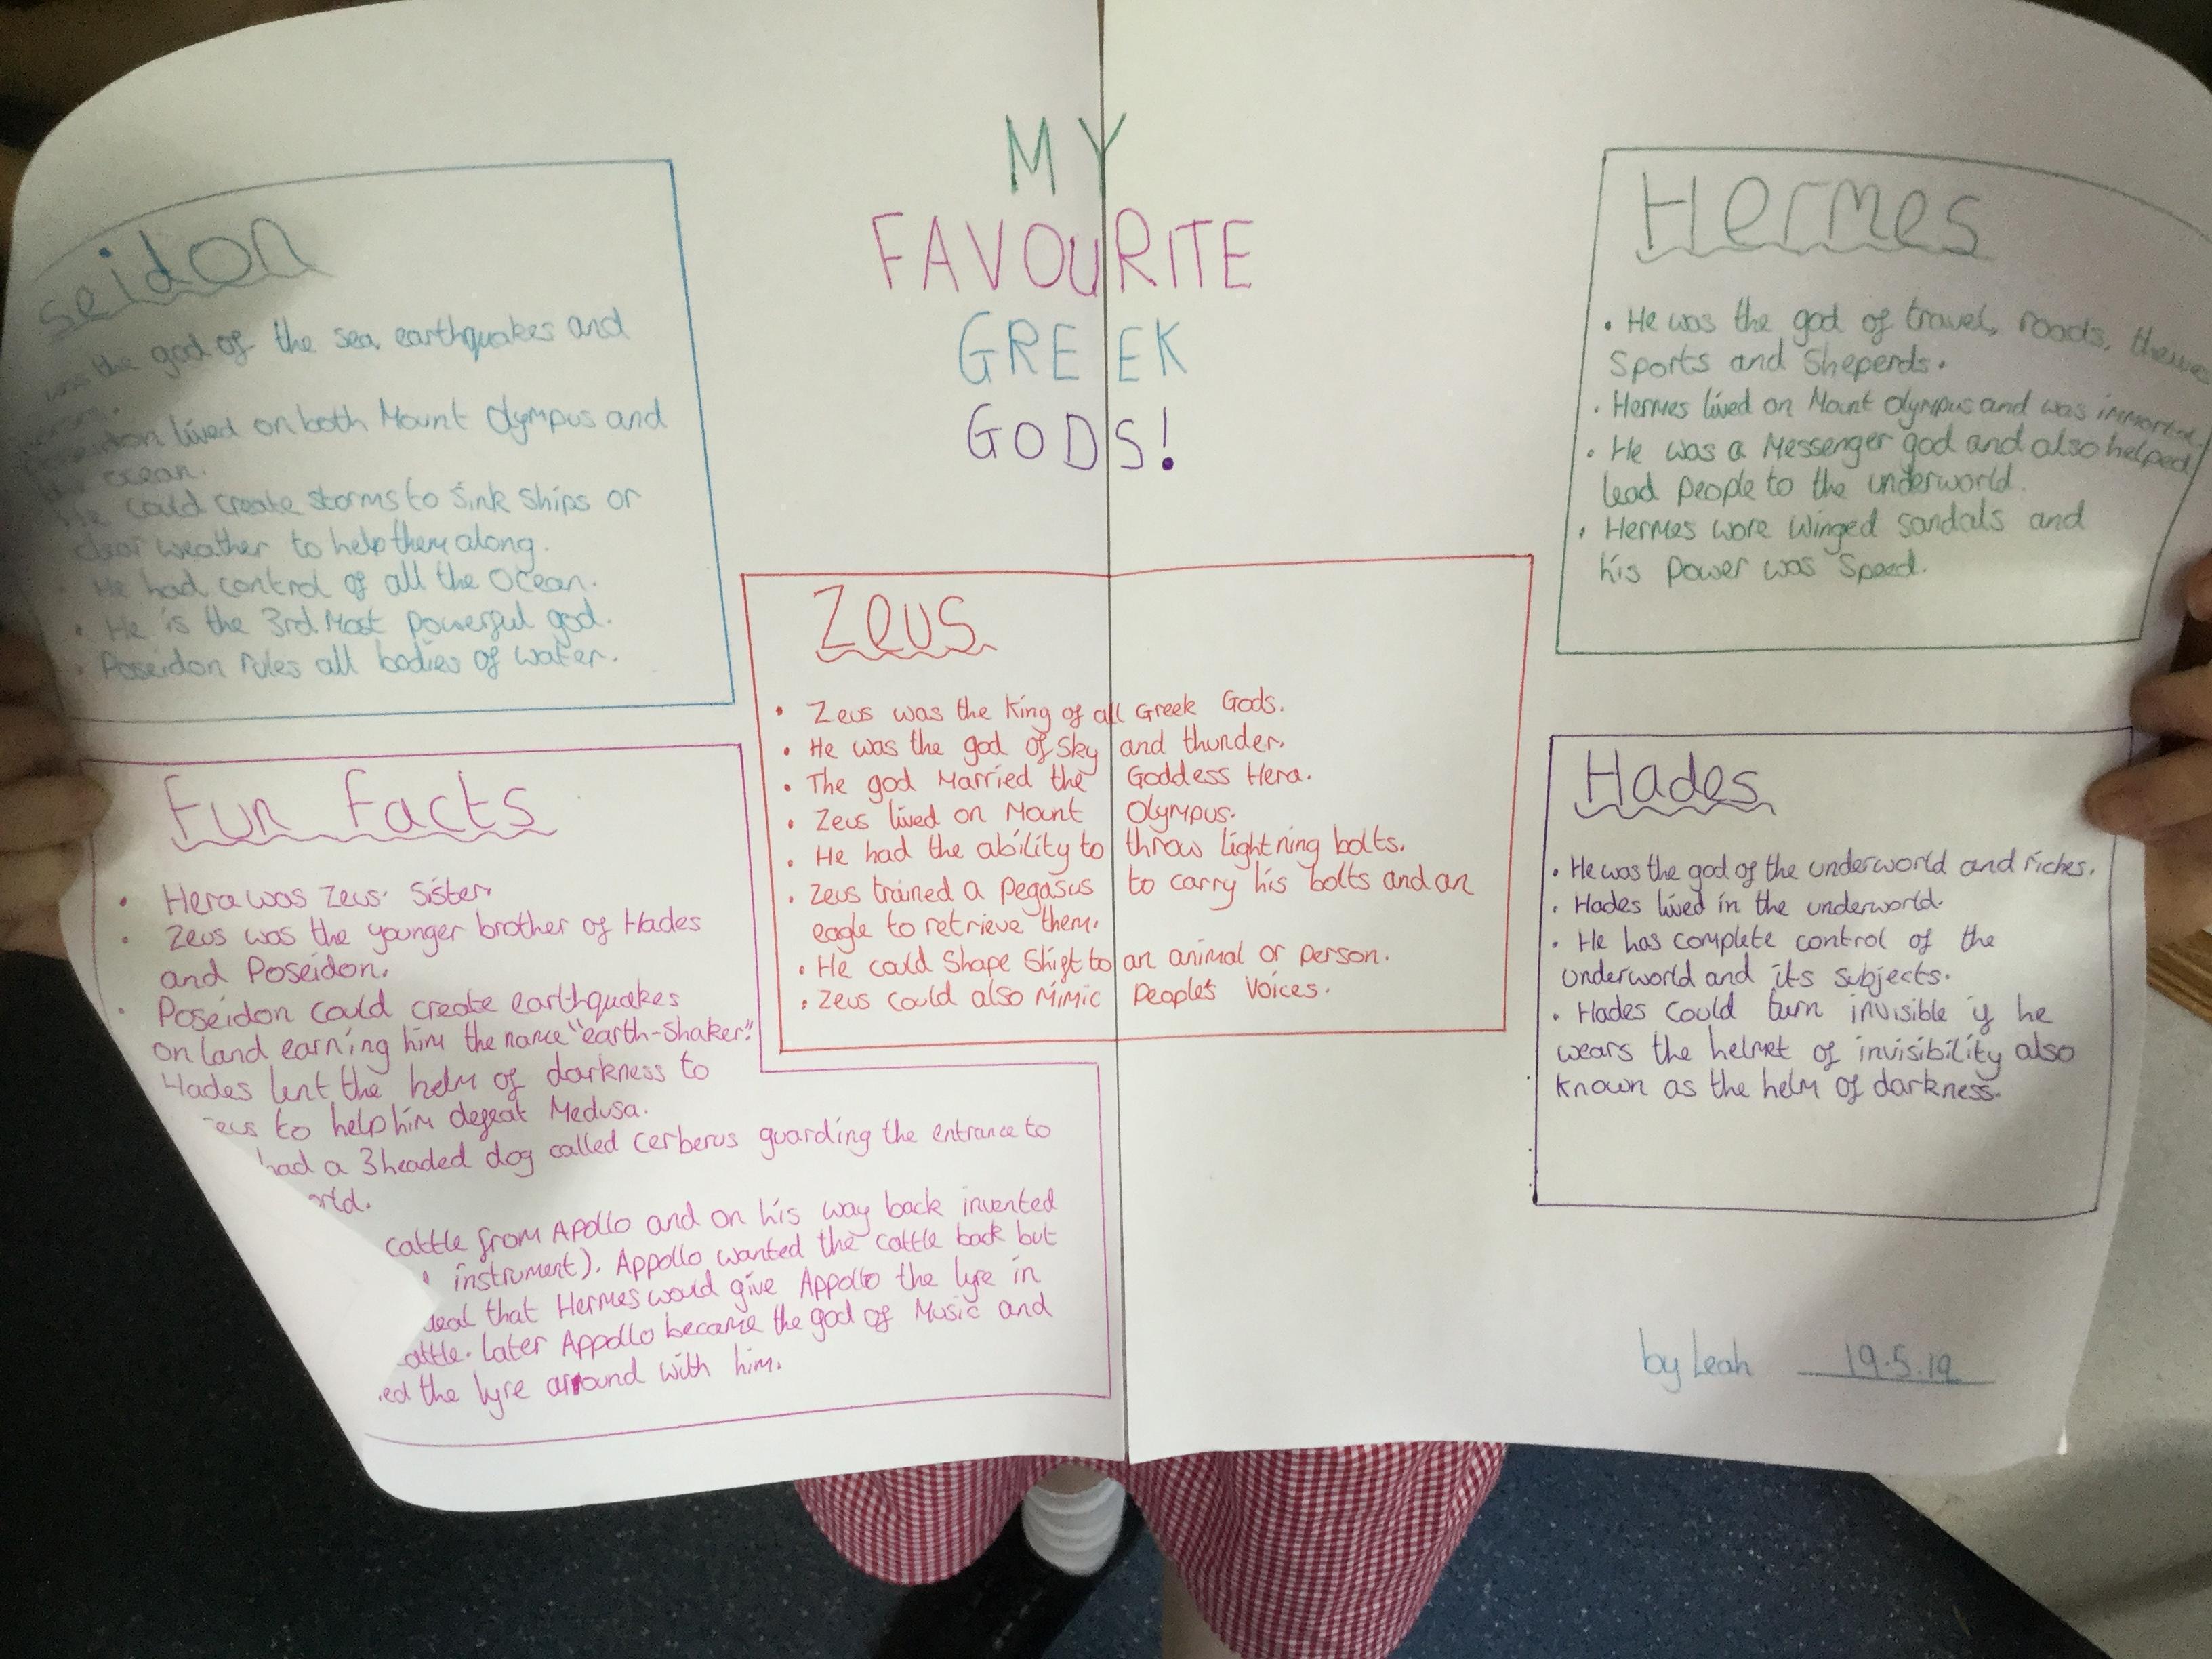 MY
FAVOURITE
GREEK
GODS!
seidon
was the god of the sea, earthquakes and
lived on both Mount Olympus and
ocean.
He could create storms to sink ships or
clear weather to help them along.
• He had control of all the Ocean.
• He is the 3rd Most powerful god.
• Poseidon rules all bodies of water.
Hermes
• He was the god of travel, roads,
Sports and Sheperds.
• Hermes lived on Mount Olympus and was immortal.
• He was a Messenger god and also helped
lead people to the underworld.
• Hermes wore Winged sandals and
his power was Speed.
Zeus
• Zeus was the King of all Greek Gods.
• He was the god of Sky and thunder.
• The god Married the Goddess Hera.
• Zeus lived on Mount Olympus.
• He had the ability to throw lightning bolts.
• Zeus trained a pegasus to carry his bolts and an
eagle to retrieve them.
• He could Shape Shift to an animal or person.
• Zeus could also Mimic People's Voices.
Fun Facts
• Hera was Zeus' Sister.
• Zeus was the younger brother of Hades
and Poseidon.
• Poseidon could create earthquakes
on land earning him the name "earth-Shaker".
Hades lent the helm of darkness to
eus to help him defeat Medusa.
had a 3 headed dog called Cerberus guarding the entrance to
orld.
cattle from Apollo and on his way back invented
instrument). Appollo wanted the cattle back but
deal that Hermes would give Appollo the lyre in
attle. Later Appollo became the god of Music and
ed the lyre around with him.
Hades
• He was the god of the underworld and riches.
• Hades lived in the underworld.
• He has complete control of the
underworld and its subjects.
• Hades Could turn invisible if he
wears the helmet of invisibility also
known as the helm of darkness.
by Leah 19.5.19